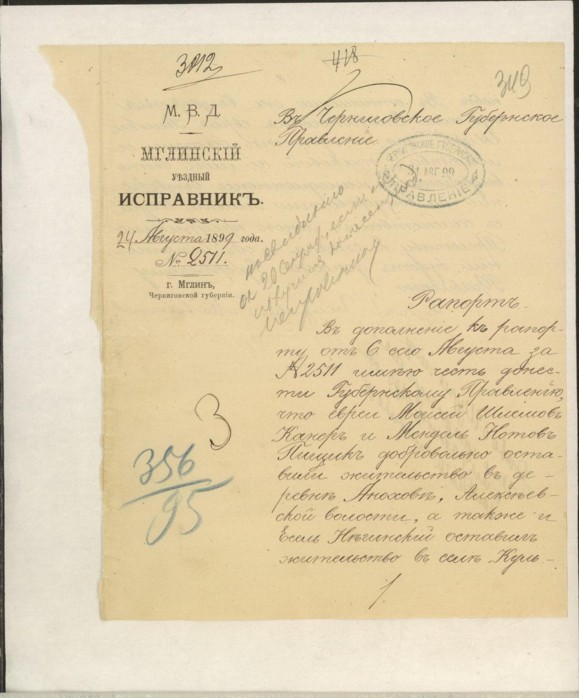 3812
418
349
М. В. Д.
МГЛИНСКІЙ
УѢЗДНЫЙ
ИСПРАВНИКЪ.
24 Августа 1899 года.
№ 2511.
г. Мглинъ,
Черниговской губерніи.
Въ Черниговское Губернское
Правленіе
АВГ. 99
ПРАВЛЕНІЕ
Рапортъ.
Въ дополненіе къ рапор-
ту отъ 6 сего Августа за
№ 2511 имѣю честь донес-
ти Губернскому Правленію,
что евреи Мойсей Шлемовъ
Канеръ и Мендель Нотовъ
Пищикъ добровольно оста-
вили жительство въ де-
ревнѣ Аноховкѣ, Алексѣев-
ской волости, а также и
Есель Нѣгинскій оставилъ
жительство въ селѣ Куль-
3
356
95
1